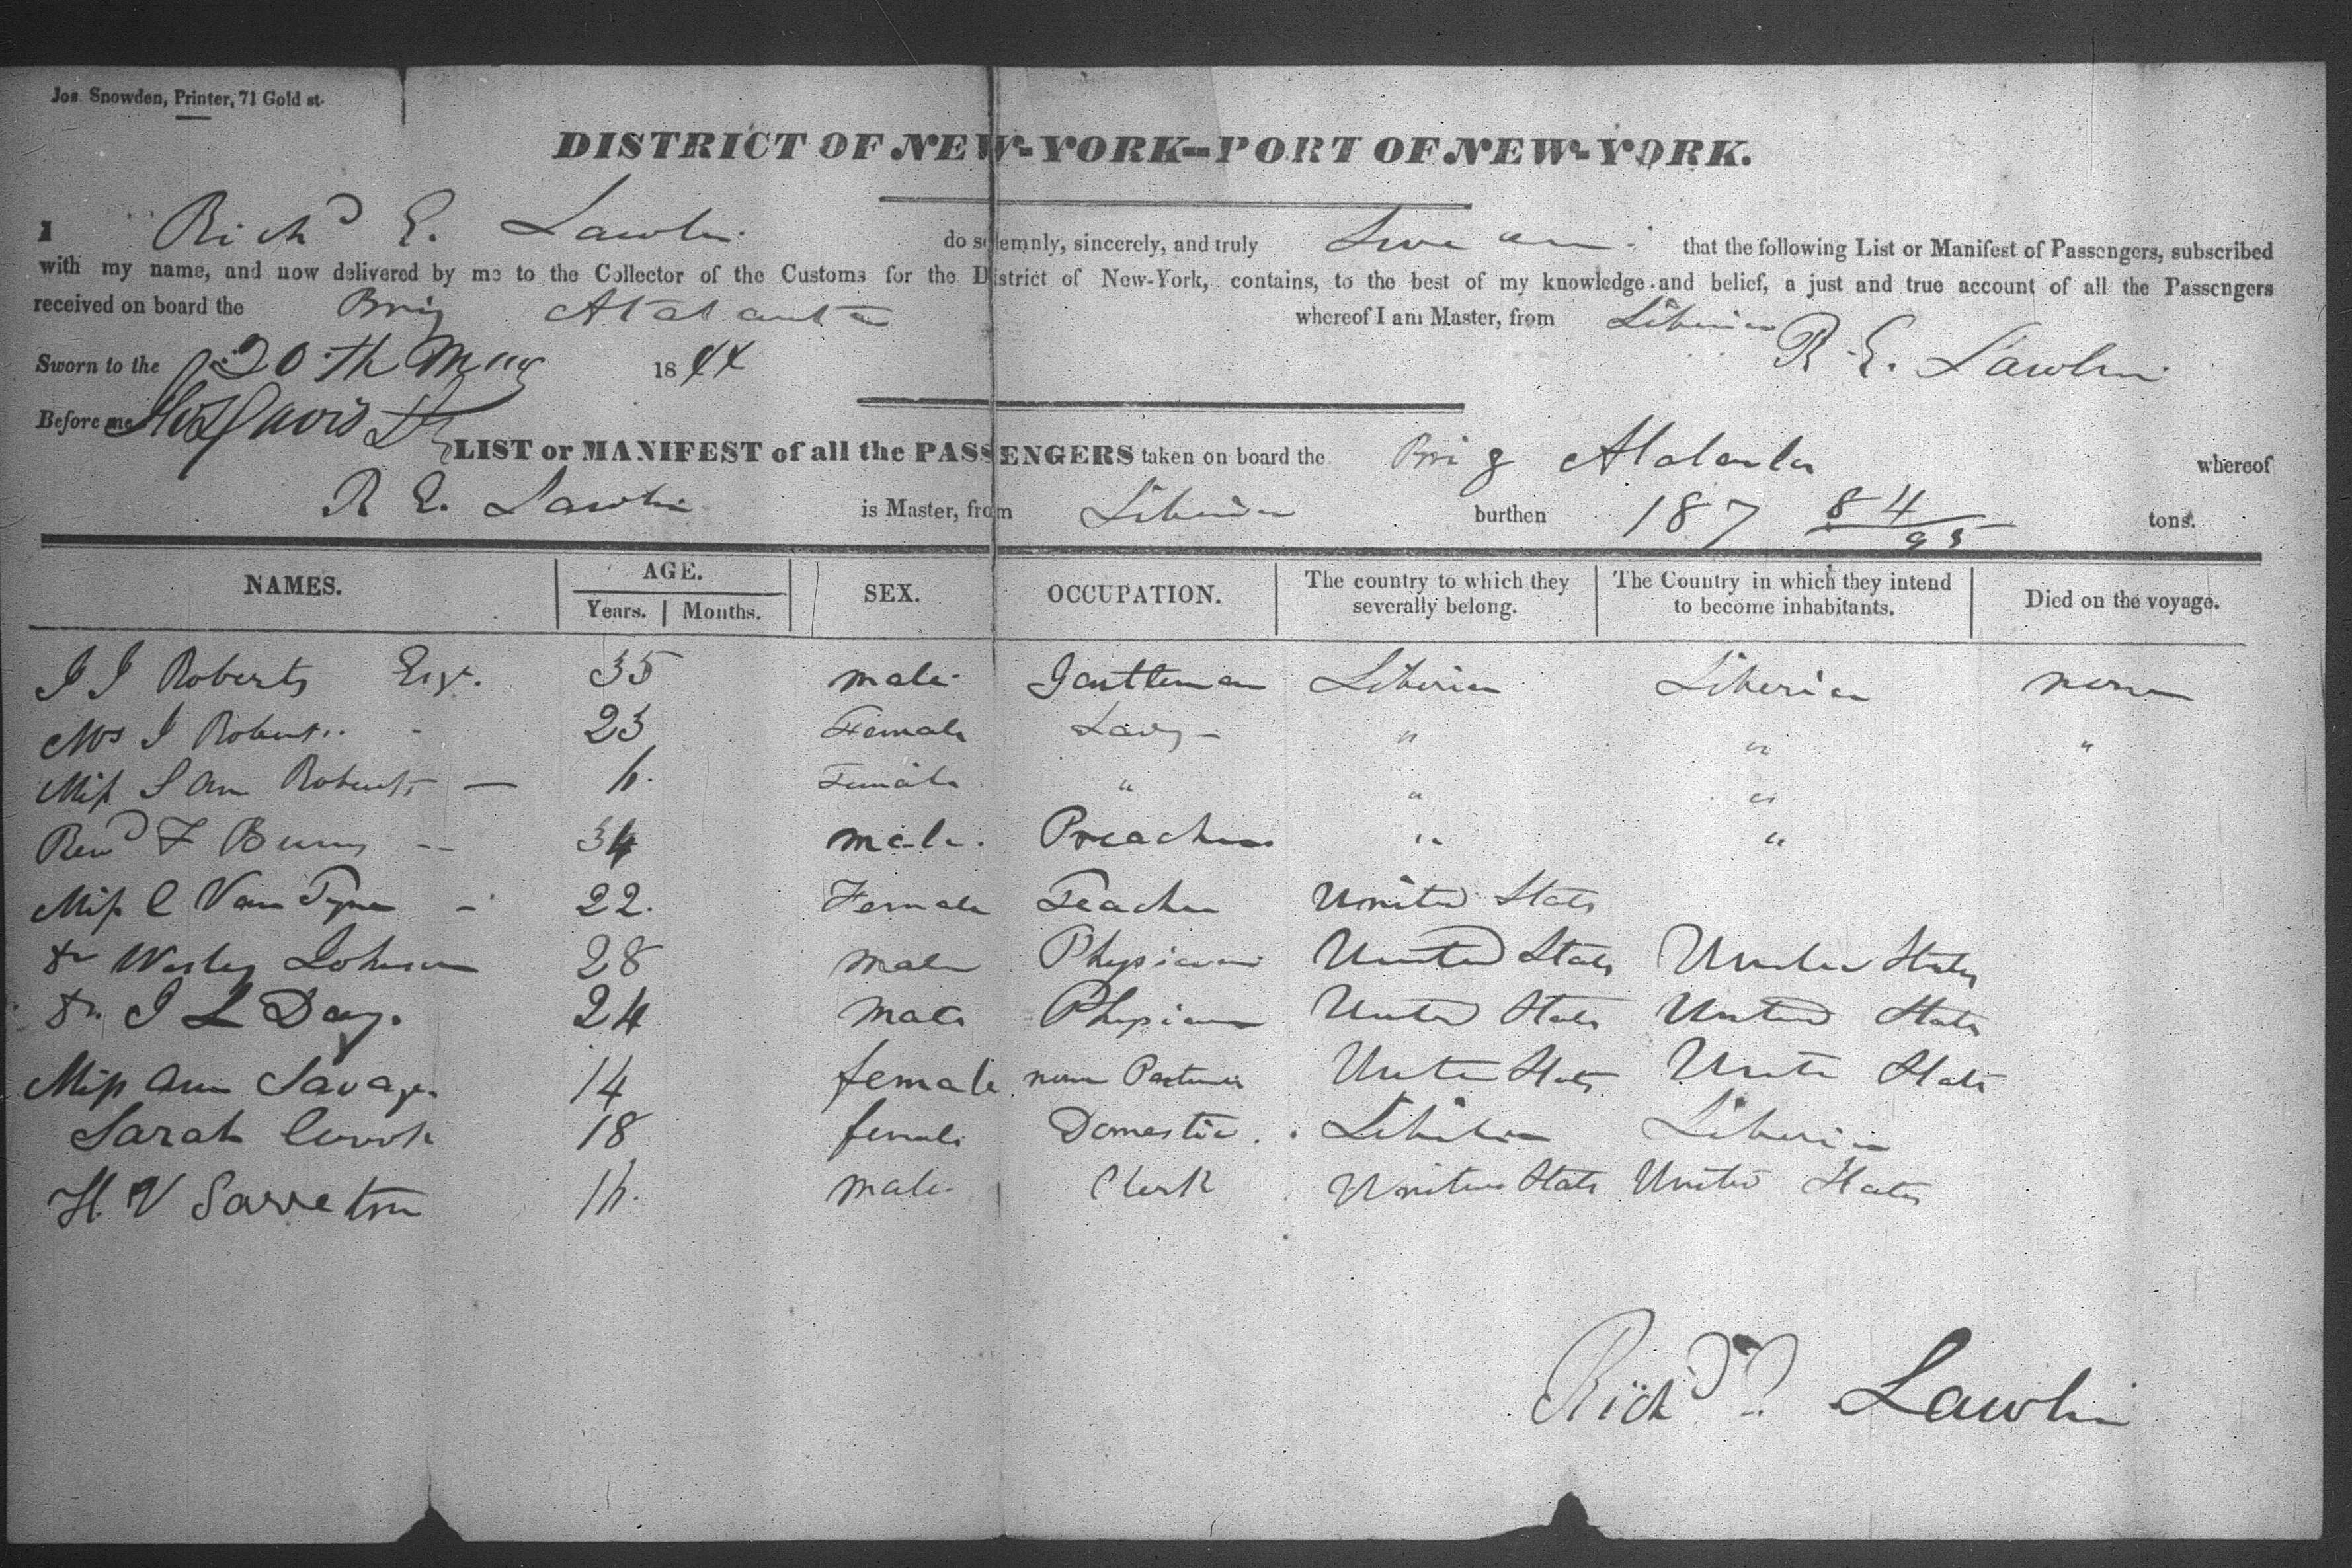 Jos. Snowden, Printer, 71 Gold st.
DISTRICT OF NEW-YORK--PORT OF NEW-YORK.
I Richd E. Lawlin do solemnly, sincerely, and truly Swear that the following List or Manifest of Passengers, subscribed
with my name, and now delivered by me to the Collector of the Customs for the District of New-York, contains, to the best of my knowledge and belief, a just and true account of all the Passengers
received on board the Brig Atalanta whereof I am Master, from Liberia
Sworn to the 20th May 1844 R. E. Lawlin
Before me
LIST or MANIFEST of all the PASSENGERS taken on board the Brig Atalanta whereof
R E. Lawlin is Master, from Liberia burthen 187 84/95 tons.
NAMES. AGE. Years. Months. SEX. OCCUPATION. The country to which they severally belong. The Country in which they intend to become inhabitants. Died on the voyage.
J J Roberts Esqr. 35 male Gentleman Liberia Liberia none
Mrs J Roberts 23 Female Lady " " "
Miss S Ann Roberts 6. Female " " "
Revd F Burns 34 male. Preacher " "
Miss C Van Tyne 22. Female Teacher United States
Dr Wesley Johnson 28 male Physician United States United States
Dr. J L Day. 24 male Physician United States United States
Miss Ann Savage. 14 female none United States United States
Sarah 18 female Domestic. Liberia Liberia
H V 16. male Clerk United States United States
Richd E Lawlin